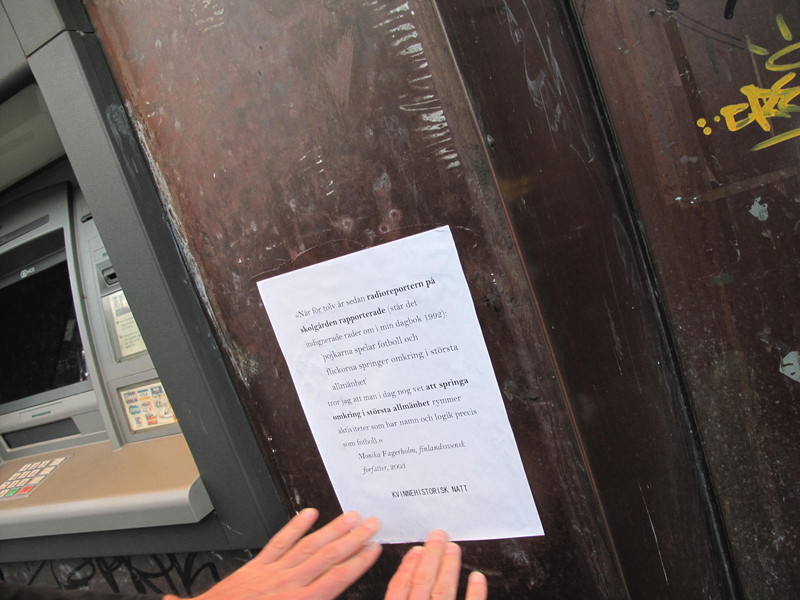 »När för tolv år sedan radioreportern på
skolgården rapporterade (står det
indignerade rader om i min dagbok 1992):
'pojkarna spelar fotboll och
flickorna springer omkring i största
allmänhet'
trot jag att man i dag nog vet att springa
omkring i största allmänhet rymmer
aktiviteter som har namn och logik precis
som fotboll.»
Monika Fagerholm, finlandssvensk
författare, 2003
KVINNEHISTORISK NATT